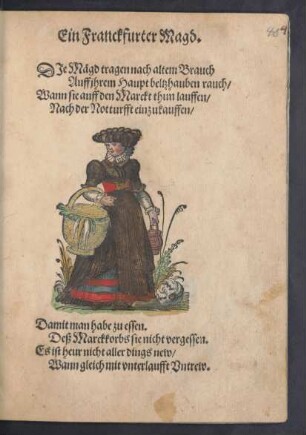 Ein Franckfurter Magd.
DJe Mägd tragen nach altem Brauch
Auff ihrem Haupt beltzhauben rauch/
Wann sie auff den Marckt thun lauffen/
Nach der Notturfft einzukauffen/
Damit man habe zu essen.
Deß Marckkorbs sie nicht vergessen.
Es ist heur nicht aller dings new/
Wann gleich mit vnterlaufft Vntrew.